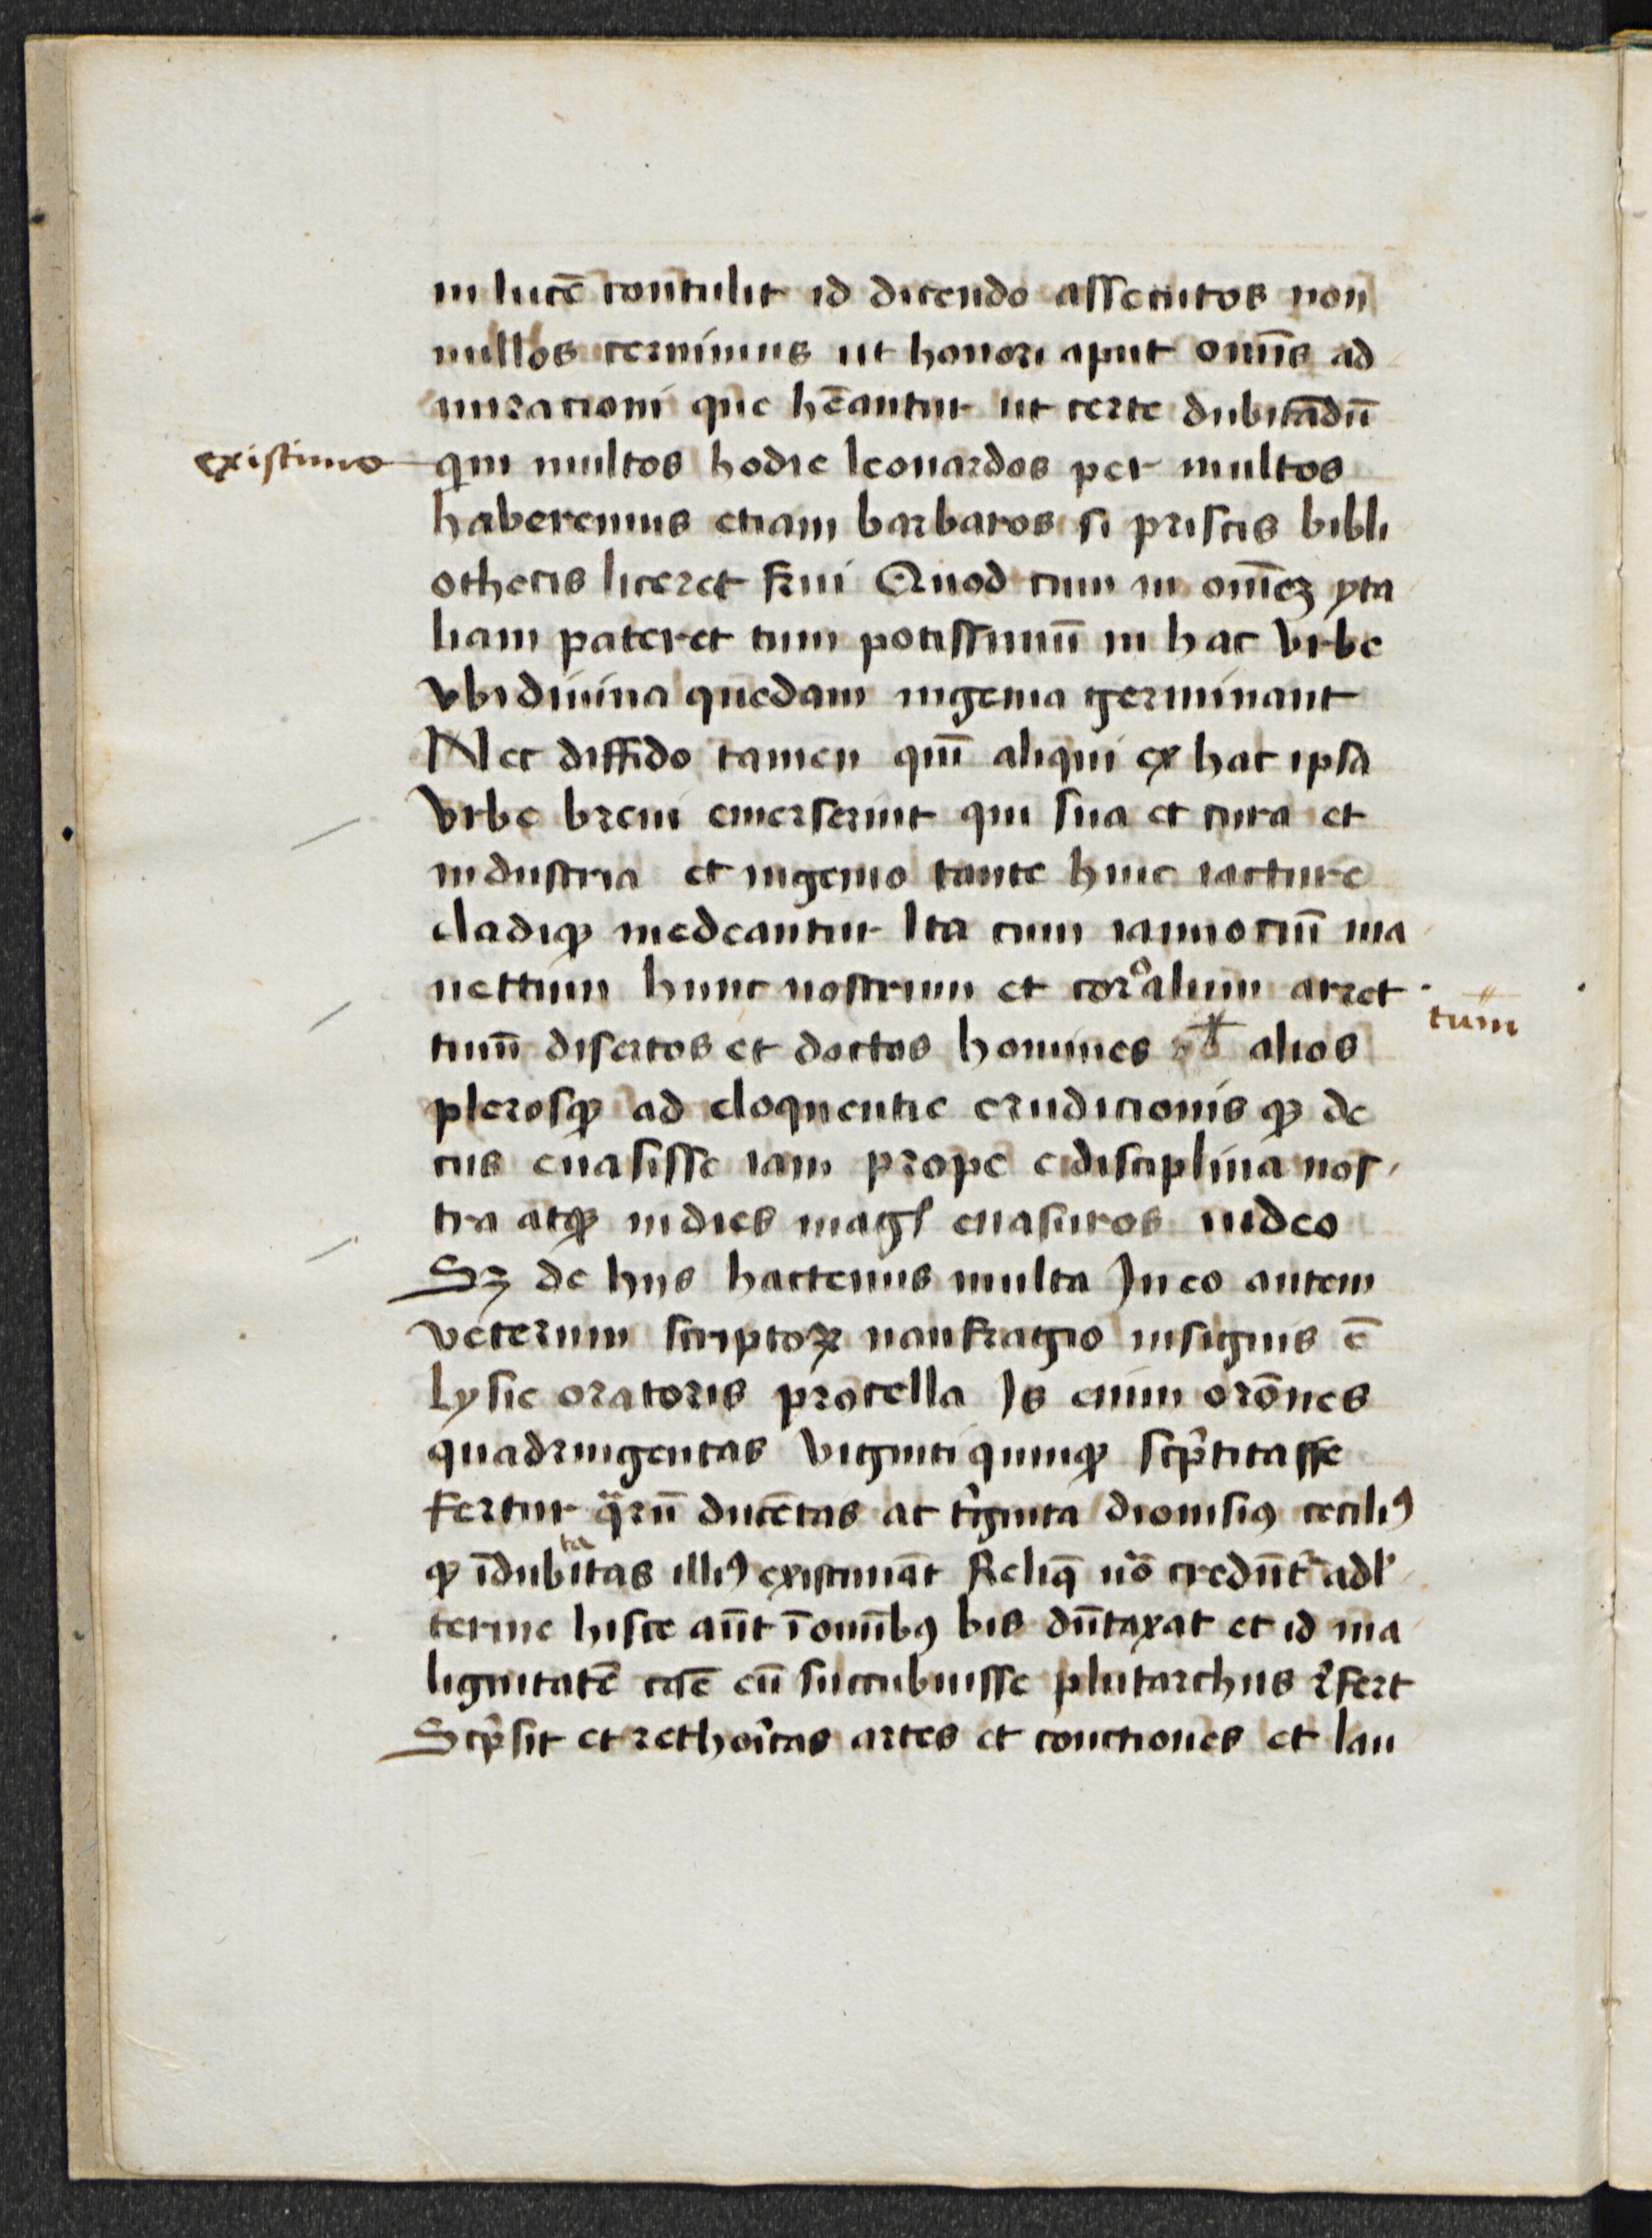 in lucē contulit id dicendo assecutos non
nullos cernimus ut honori aput om̄s ad
miracioni que hēantur ut certe dubitādū
existimo
qui multos hodie leonardos per multos
haberemus etiam barbaros si priscis bibli
othecis liceret frui Quod cum in om̄eꝫ yta
liam pateret tum potissimū in hac vrbe
vbi diuina quedam ingenia germinant
Nec diffido tamen quī aliqui ex hac ipsa
vrbe breui emerserint qui sua et cura et
industria et ingenio tante huic iacture
cladiqꝫ medeantur Ita cum iannociū ma
nettum hunc nostrum et corͦalum arret
tum
tinū disertos et doctos homines alios
plerosqꝫ ad eloquentie erudicionis qꝫ de
cus euasisse iam prope e disciplina nos
tra atqꝫ indies magꝭ euasuros uideo
Sꝫ de hiis hactenus multa In eo autem
veterum scriptoꝝ naufragio insignis ē
lysie oratoris procella Is enim orōnes
quadringentas viginti quinqꝫ scͥptitasse
fertur qͣrū ducētas ac tͥginta dionisiꝰ ceciliꝰ
ta
qꝫ īdubitas illiꝰ existimāt Reliqͣ nō credūtͬ adl
terine hisce aūt ī om̄ibꝰ bis dūtaxat et id ma
lignitatē cāe eū succubuisse plutarchus rͤfert
Scͥpsit et rethoͥcas artes et conctiones et lau